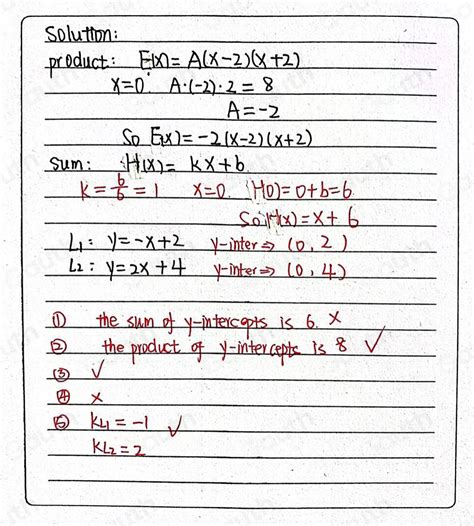 Solution:
product: E(x)= A(x-2)(x+2)
x=0. A·(-2)·2=8
A=-2
So E(x)=-2(x-2)(x+2)
sum: H(x)= kx+b.
k=6/6=1 x=0. H(0)=0+b=6.
So H(x)=x+6
L1: y=-x+2 y-inter⇒ (0,2)
L2: y=2x+4 y-inter⇒ (0,4)
① the sum of y-intercepts is 6. ×
② the product of y-intercepts is 8 ✓
③ ✓
④ ×
⑤ kL1=-1 ✓
kL2=2